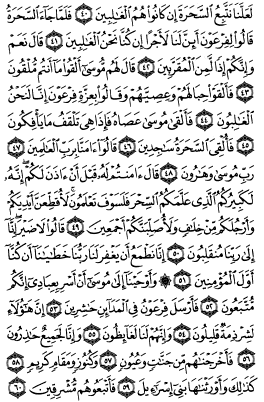 لَعَلَّنَا نَتَّبِعُ ٱلسَّحَرَةَ إِن كَانُوا۟ هُمُ ٱلْغَٰلِبِينَ ٤٠ فَلَمَّا جَآءَ ٱلسَّحَرَةُ
قَالُوا۟ لِفِرْعَوْنَ أَئِنَّ لَنَا لَأَجْرًا إِن كُنَّا نَحْنُ ٱلْغَٰلِبِينَ ٤١ قَالَ نَعَمْ
وَإِنَّكُمْ إِذًا لَّمِنَ ٱلْمُقَرَّبِينَ ٤٢ قَالَ لَهُم مُّوسَىٰٓ أَلْقُوا۟ مَآ أَنتُم مُّلْقُونَ
٤٣ فَأَلْقَوْا۟ حِبَالَهُمْ وَعِصِيَّهُمْ وَقَالُوا۟ بِعِزَّةِ فِرْعَوْنَ إِنَّا لَنَحْنُ
ٱلْغَٰلِبُونَ ٤٤ فَأَلْقَىٰ مُوسَىٰ عَصَاهُ فَإِذَا هِىَ تَلْقَفُ مَا يَأْفِكُونَ
٤٥ فَأُلْقِىَ ٱلسَّحَرَةُ سَٰجِدِينَ ٤٦ قَالُوٓا۟ ءَامَنَّا بِرَبِّ ٱلْعَٰلَمِينَ ٤٧
رَبِّ مُوسَىٰ وَهَٰرُونَ ٤٨ قَالَ ءَامَنتُمْ لَهُۥ قَبْلَ أَنْ ءَاذَنَ لَكُمْ إِنَّهُۥ
لَكَبِيرُكُمُ ٱلَّذِى عَلَّمَكُمُ ٱلسِّحْرَ فَلَسَوْفَ تَعْلَمُونَ لَأُقَطِّعَنَّ أَيْدِيَكُمْ
وَأَرْجُلَكُم مِّنْ خِلَٰفٍ وَلَأُصَلِّبَنَّكُمْ أَجْمَعِينَ ٤٩ قَالُوا۟ لَا ضَيْرَ إِنَّآ
إِلَىٰ رَبِّنَا مُنقَلِبُونَ ٥٠ إِنَّا نَطْمَعُ أَن يَغْفِرَ لَنَا رَبُّنَا خَطَٰيَٰنَآ أَن كُنَّآ
أَوَّلَ ٱلْمُؤْمِنِينَ ٥١ وَأَوْحَيْنَآ إِلَىٰ مُوسَىٰٓ أَنْ أَسْرِ بِعِبَادِىٓ إِنَّكُم
مُّتَّبَعُونَ ٥٢ فَأَرْسَلَ فِرْعَوْنُ فِى ٱلْمَدَآئِنِ حَٰشِرِينَ ٥٣ إِنَّ هَٰٓؤُلَآءِ
لَشِرْذِمَةٌ قَلِيلُونَ ٥٤ وَإِنَّهُمْ لَنَا لَغَآئِظُونَ ٥٥ وَإِنَّا لَجَمِيعٌ حَٰذِرُونَ
٥٦ فَأَخْرَجْنَٰهُم مِّن جَنَّٰتٍ وَعُيُونٍ ٥٧ وَكُنُوزٍ وَمَقَامٍ كَرِيمٍ ٥٨
كَذَٰلِكَ وَأَوْرَثْنَٰهَا بَنِىٓ إِسْرَٰٓءِيلَ ٥٩ فَأَتْبَعُوهُم مُّشْرِقِينَ ٦٠